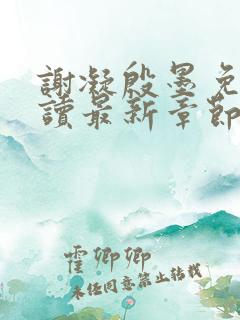 謝凝殷墨免
讀最新章節
霍卿卿
未经同意禁止转载